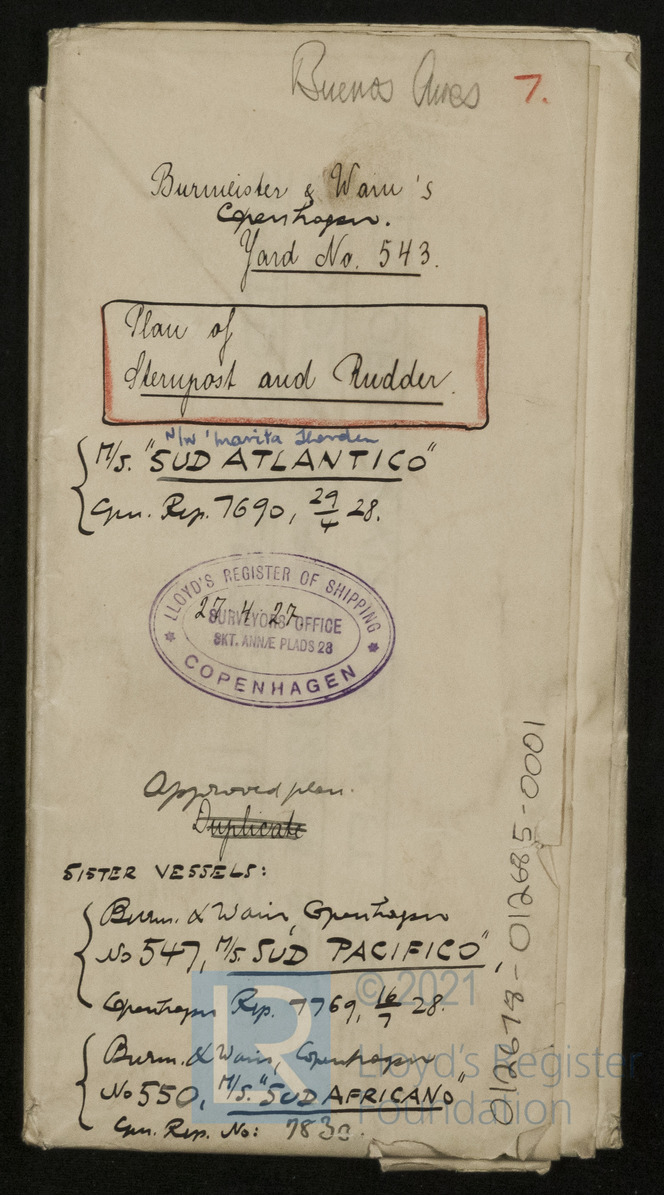 Buenos Aires 7.
Burmeister & Wain's
Copenhagen.
Yard No. 543.
Plan of
Sternpost and Rudder.
N/N 'Marita Thordén
M/S. "SUD ATLANTICO"
Gen. Rep. 7690, 29/4 28.
LLOYD'S REGISTER OF SHIPPING
27.4.27
SURVEYORS' OFFICE
SKT. ANNÆ PLADS 28
COPENHAGEN
Approved plan.
Duplicate
SISTER VESSELS:
Burm. & Wain, Copenhagen
No 547, M/S. SUD PACIFICO",
Copenhagen Rep. 7769, 16/7 28.
Burm. & Wain, Copenhagen
No 550, M/S. "SUD AFRICANO"
Gen. Rep. No: 783
012678-012685-0001
© 2021
LR
Lloyd's Register
Foundation